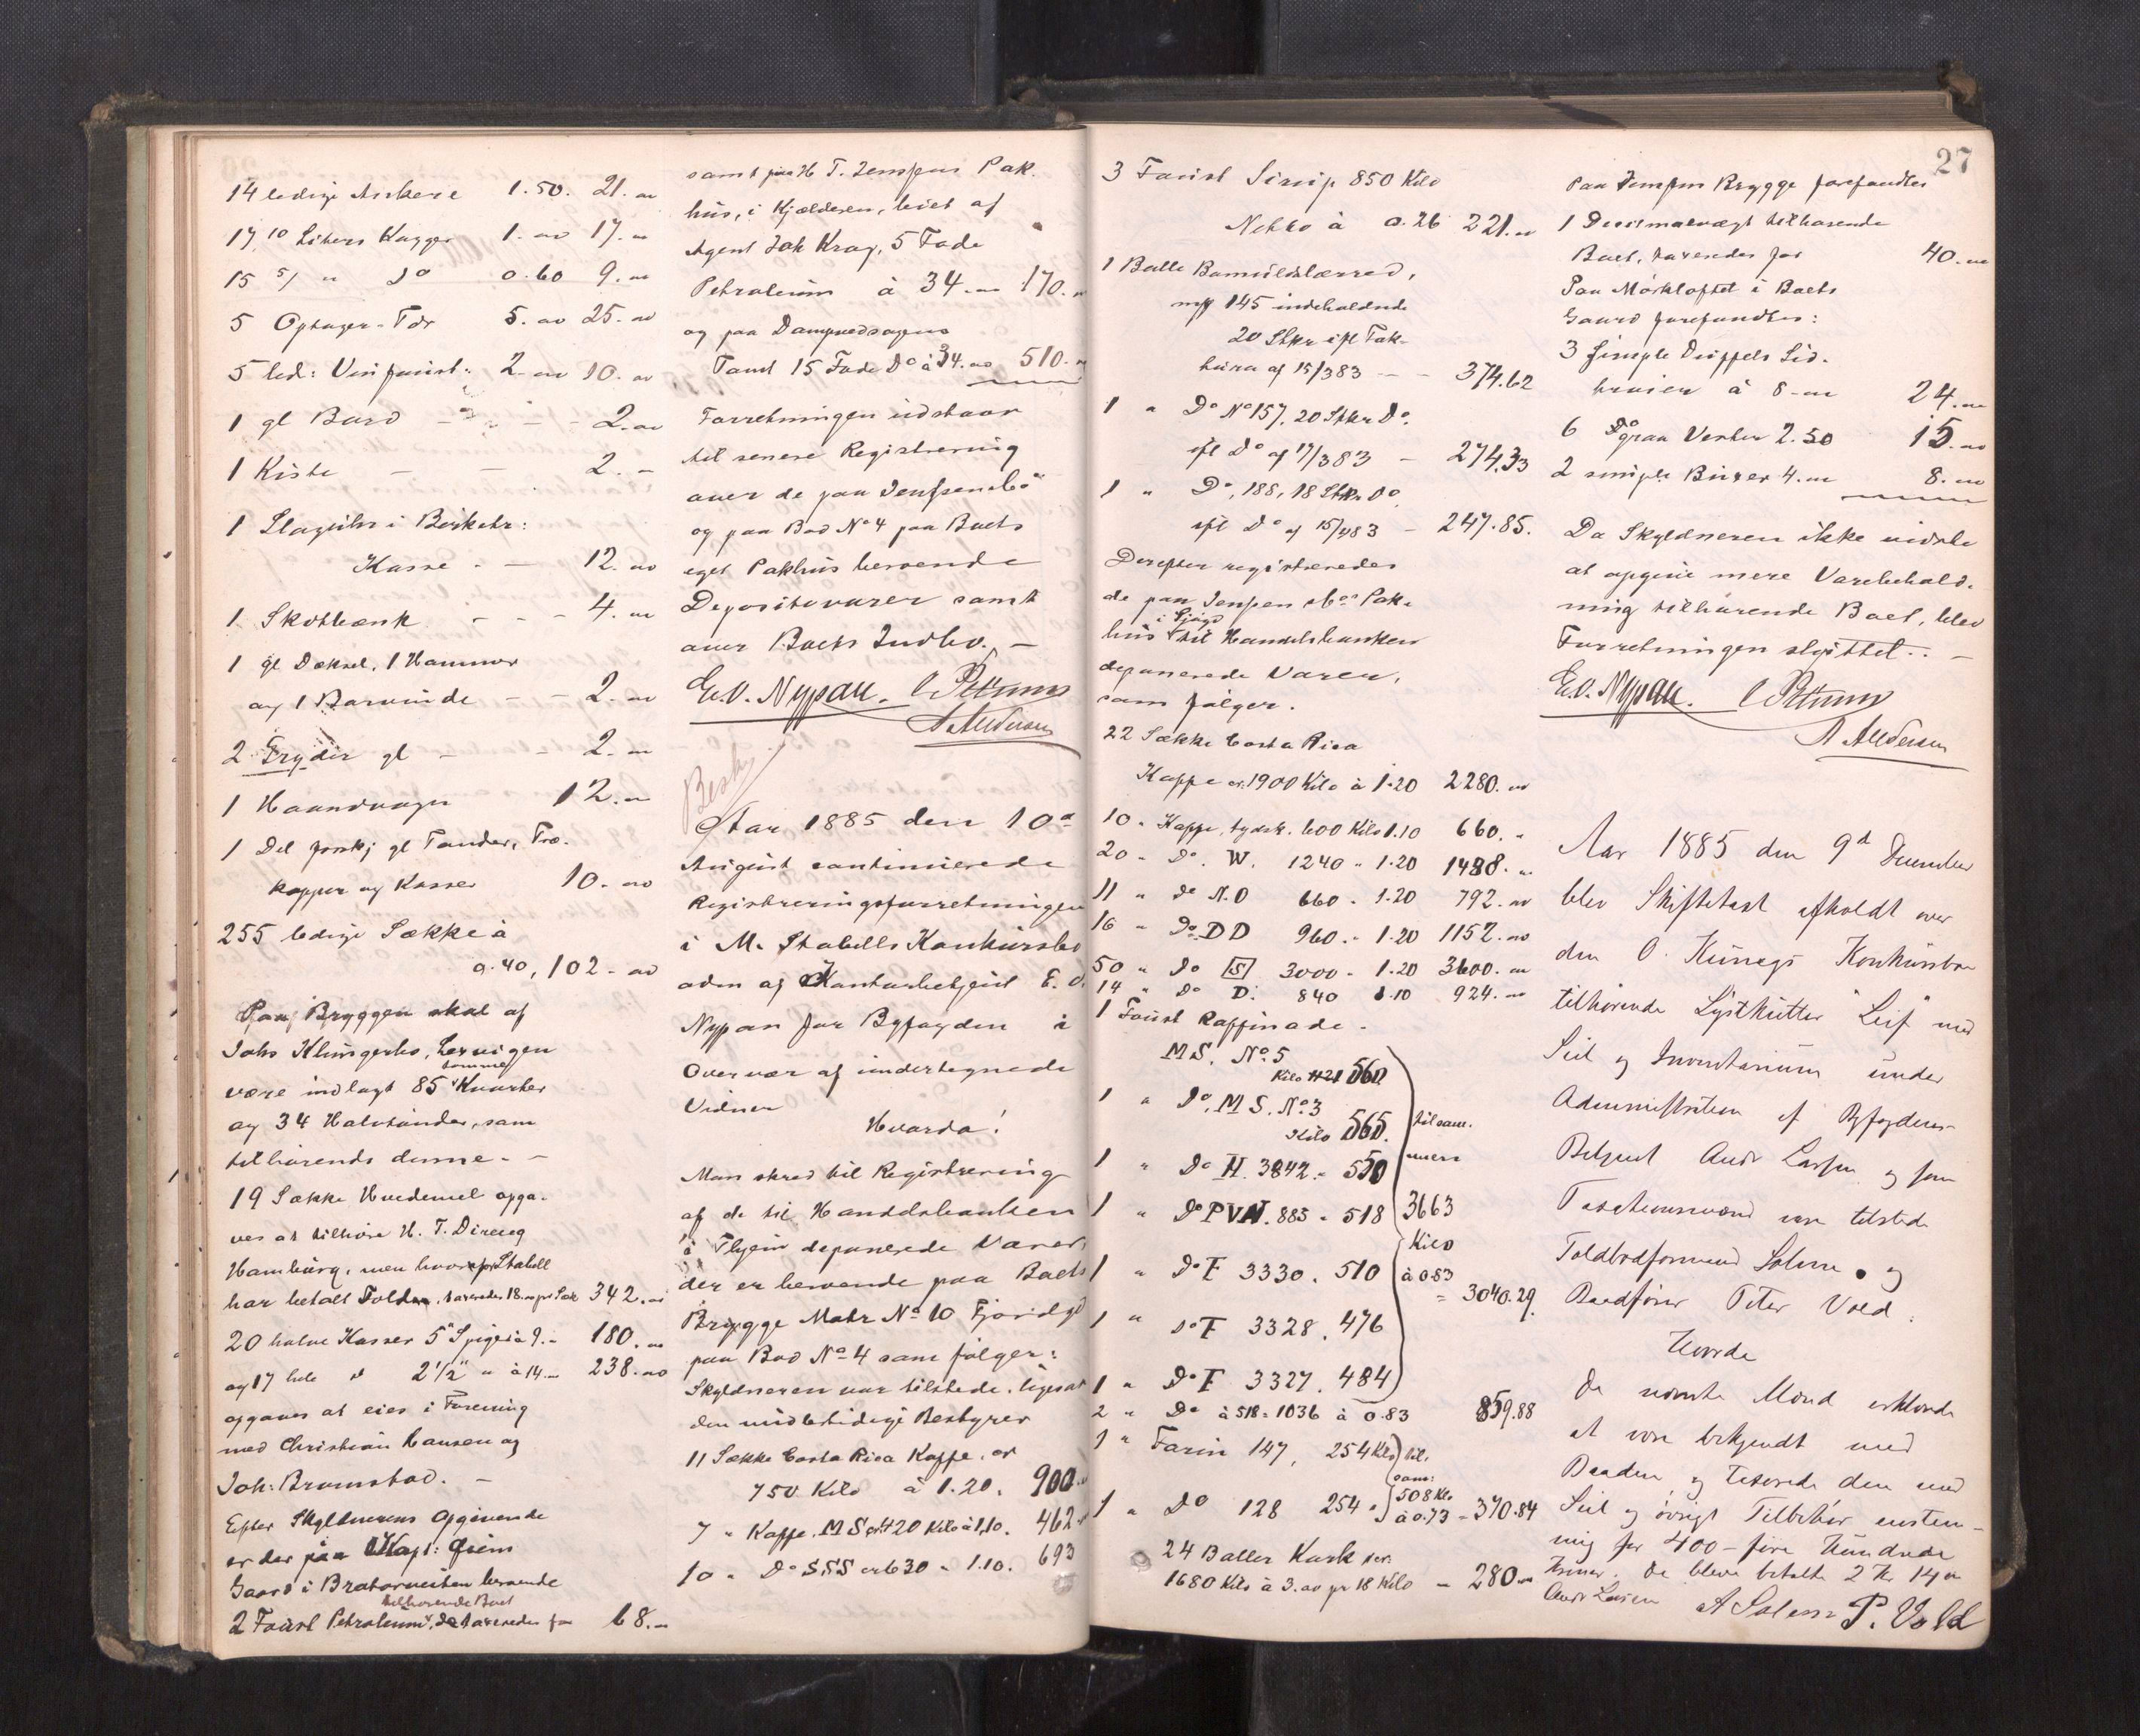 14 ledige Ankere 1.50. 21.
17 10 Liters Kagger 1. 17.
15 5/ " Do 0.60 9.
5 Optager-Tdr 5. 25.
5 led: Vinfoust: 2. 10.
1 gl Bord - - 2.
1 Kiste - - 2. -
1 i
Kasse - - 12.
1 Skotbænk - - - 4.
1 gl Dæksel, 1 Hammer
og 1 - - 2.
2 Gryder gl - - 2.
1 Haandvogn 12.
1 Del forskj gl Tønder, Træ-
kopper og Kasser 10.
255 ledige Sække à
0.40, 102 -
Paa Bryggen skal af
Johs Klingenbo,
være indlagt 85 tomme Kvarter
og 34 Halvtønder, som
tilhørende denne. -
19 Sække Hvedemel opga-
ves at tilhøre H. T.
Hamburg, men hvorfor Stabell
har betalt Tolden, taxeredes 18. pr Sæk 342.
20 halve Kasser 5" Spiger à 9. - 180.
og 17 hele d 2 1/2" " à 14. 238.
opgaves at eies i Forening
med Christian Hansen og
Joh: Bromstad. -
Efter Skyldnerens Opgivende
er der paa Kapt: Qviems
Gaard i Bratørveiten beroende
2 Foust Petroleum tilhørende Boet, de taxeredes for 68.
samt paa H T. Jenssens Pak-
hus, i Kjælderen, leiet af
Agent Joh Krog, 5 Fade
Petroleum à 34. 170.
og paa Dampvedsagens
Tomt 15 Fade Do à 34. 510.
Forretningen udstaar
til senere Registrering
over de paa Jenssen & Co
og paa Bod No 4 paa Boets
eget Pakhus beroende
Depositovarer samt
over Boets Indbo. -
E. O. Nypan.
A Andersen
Aar 1885 den 10d
August continuerede
Registreringsforretningen
i M. Stabells Konkursbo
adm af Kontorbetjent E. O.
Nypan for Byfogden i
Overvær af undertegnede
Vidner
Hvorda!
Man skred til Registrering
af de til Handelsbanken
i Thjem deponerede Varer,
der er beroende paa Boets
Brygge Matr No 10 Fjordgd
paa Bod No 4 som følger:
Skyldneren var tilstede, ligesaa
den midlertidige Bestyrer
11 Sække Costa Rica Kaffe, er
750 Kilo à 1.20. 900
7 " Kaffe. MS er 420 Kilo à 1.10. 462
10 " Do SSS er 630 " 1.10. 693
27
3 Foust Sirup 850 Kilo
Netto à 0.26 221.
1 Balle Bomuldslærred,
mg 145 indeholdende
20 Stkr ifl Fak-
tura af 15/383 - - 374.62
1 " Do No 157, 20 Stkr Do.
ifl Do af 17/383 - 274.33
1 " Do, 188, 18 Stkr Do
ifl Do af 15/483 - 247.85.
Derefter registreredes
de paa Jenssen & Cos Pak-
hus i Sjøgd til Handelsbanken
deponerede Varer,
som følger.
22 Sække Costa Rica
Kaffe er 1900 Kilo à 1.20 2280.
10 " Kaffe, tydsk. 600 Kilo 1.10 660. "
20 " Do. W. 1240 " 1.20 1488. "
11 " do N.O 660 " 1.20 792.
16 " Do DD 960. " 1.20 1152.
50 " Do S 3000 " 1.20 3600.
14 " Do D. 840 1.10 924.
1 Foust Raffinade -
MS. No. 5
Kilo 560
1 " Do. MS. No. 3
Kilo 565.
1 " Do H. 3842. " 550
1 " Do PVN. 885 " 518
1 " Do F 3330. 510
1 " Do F 3328. 476
1 " Do F 3327. 484
tilsam-
mens
3663
Kilo
à 0.83
= 3040.29.
2 " Do à 518 = 1036 à 0.83 859.88
1 " Farin 147, 254 Klo
1 " Do 128 254 "
til-
sam:
508 Klo
à 0.73 = 370.84
24 Baller Kork
1680 Kilo à 3. pr 18 Kilo = 280.
Paa Jenssens Brygge forefandtes
1 Decimalvægt tilhørende
Boet, taxeredes for 40.
Paa Mørkloftet i Boets
Gaard forefandtes:
3 simple
à 8. 24.
6 Do graa Vester 2.50 15.
2 simple Buxer 4. 8.
Da Skyldneren ikke vidste
at opgive mere Varebehold-
ning tilhørende Boet, blev
Forretningen sluttet. -
E. O. Nypan.
A Andersen
Aar 1885 den 9d December
blev Skiftetaxt afholdt over
den O. Konkursbo
tilhørende Lystkutter "Leif" med
Seil og Inventarium under
Administration af Byfogdens
Betjent Andr Larsen og som
Taxationsmænd vare tilstede
Toldbodformand Solem og
Baadfører Peter Vold.
Hvorda
De nævnte Mænd erklærede
at være bekjendt med
Baaden og taxerede den med
Seil og øvrigt Tilbehør enstem-
mig for 400 - fire Hundrede
Kroner. De bleve betalte 2 Kr 14
Andr Larsen A Solem P. Vold